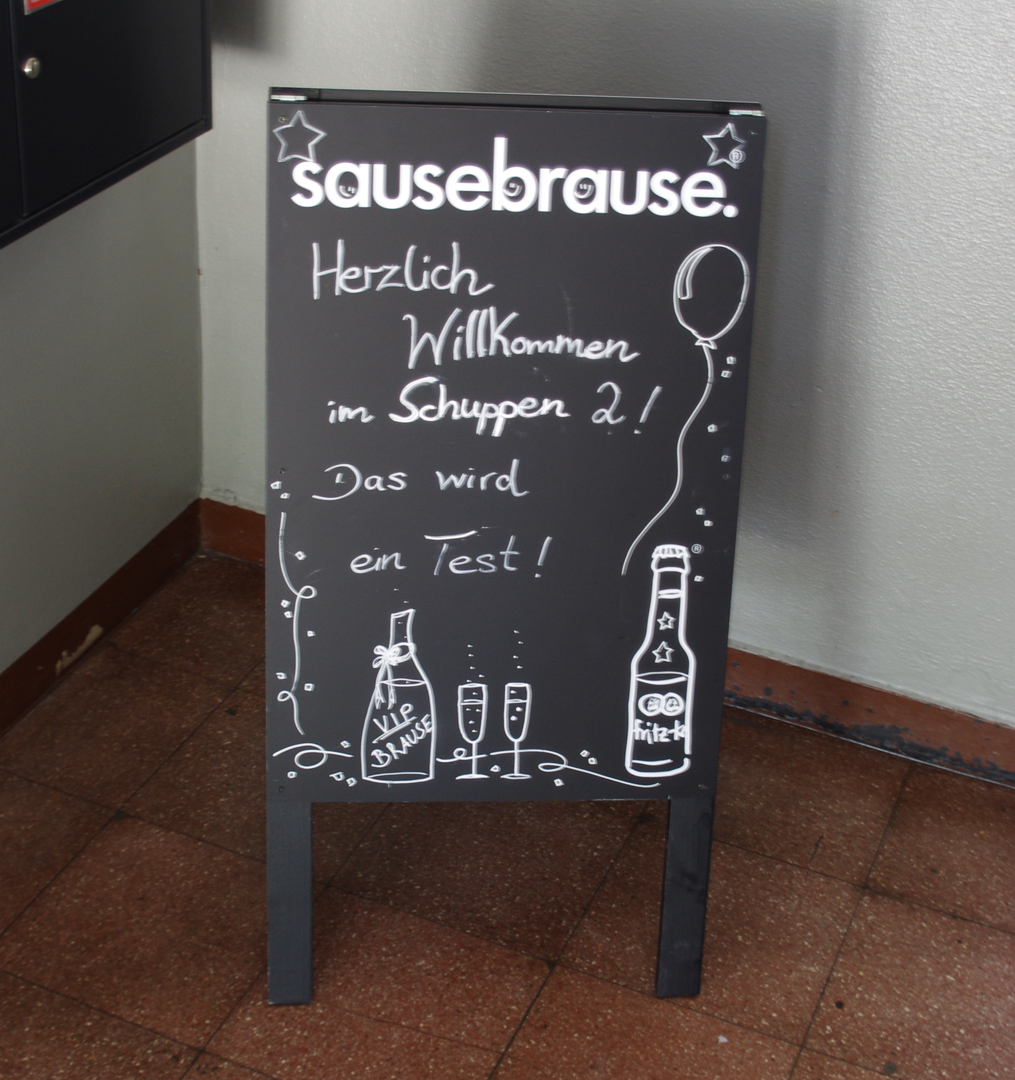 sausebrause.®
Herzlich
Willkommen
im Schuppen 2!
Das wird
ein Test!
®
VIP
BRAUSE
fritz-k